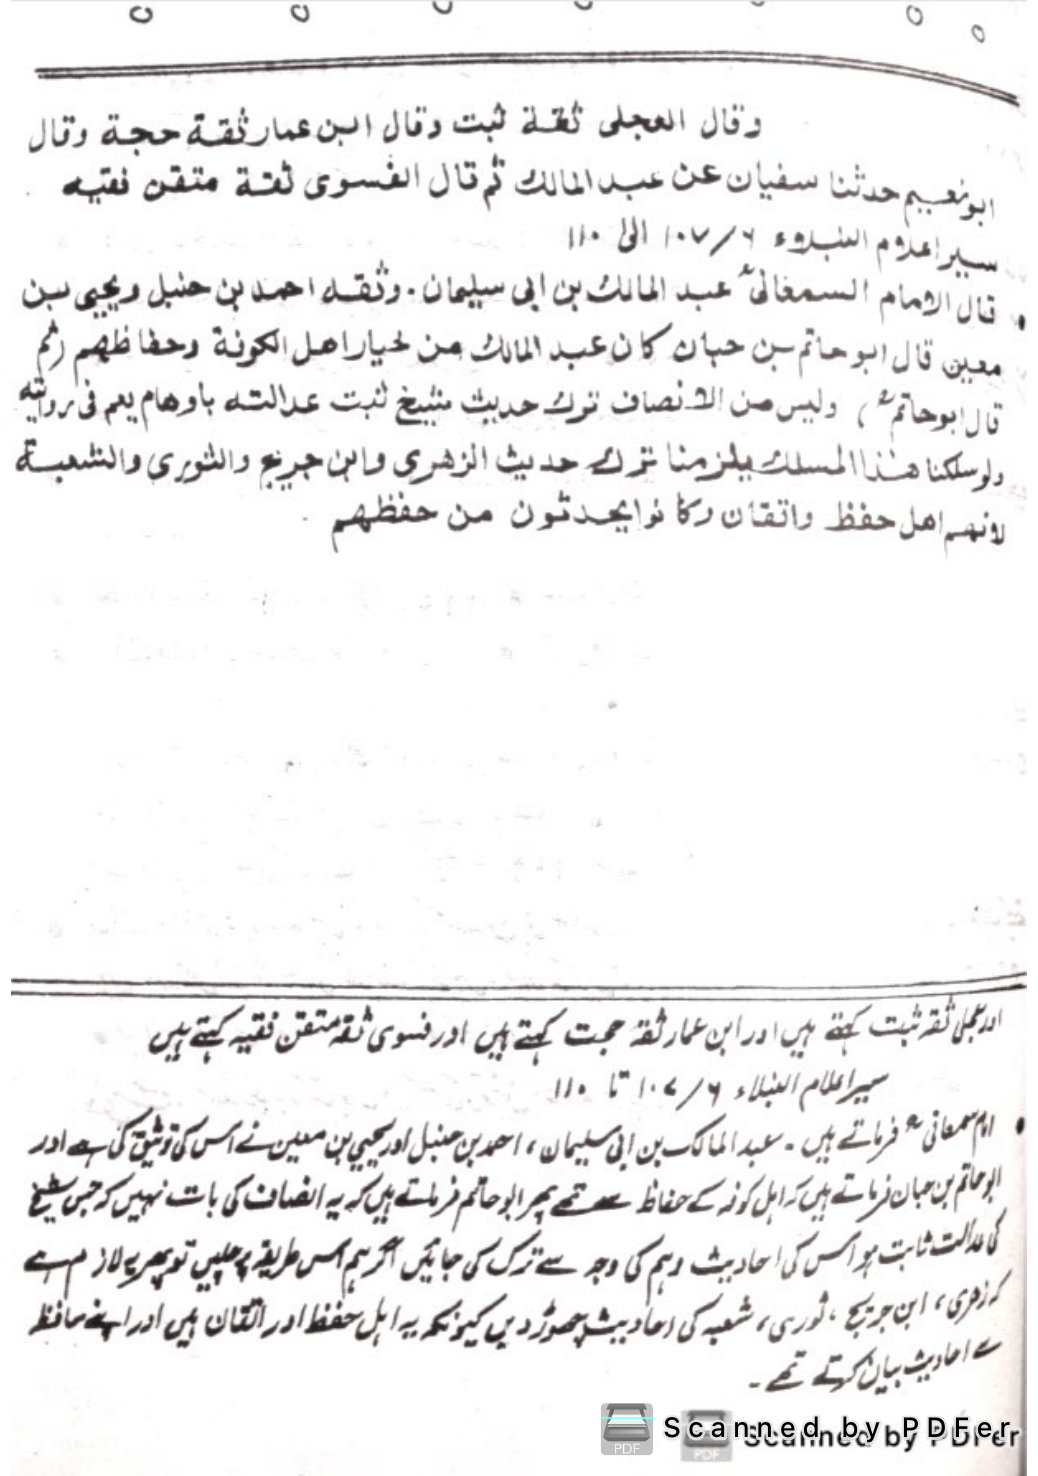 وقال العجلى ثقة ثبت وقال ابن عمار ثقة حجة وقال
ابونعيم حدثنا سفيان عن عبد المالك ثم قال الفسوى ثقة متقن فقيه
سير اعلام النبلاء ۶/۱۰۷ الى ۱۱۰
• قال الامام السمعانىؒ عبد المالك بن ابى سليمان. وثقه احمد بن حنبل ويحيى بن
معين قال ابو حاتم بن حبان كان عبد المالك من خيار اهل الكوفة وحفاظهم (ثم
قال ابو حاتمؒ) وليس من الانصاف ترك حديث شيخ ثبت عدالته باوهام يهم فى روايته
ولو سلكنا هذا المسلك يلزمنا ترك حديث الزهرى وابن جريج والثورى والشعبة
لانهم اهل حفظ واتقان وكانوا يحدثون من حفظهم
اور عجلی ثقہ ثبت کہتے ہیں اور ابن عمار ثقہ حجت کہتے ہیں اور فسوی ثقہ متقن فقیہ کہتے ہیں
سیر اعلام النبلاء ۶/۱۰۷ تا ۱۱۰
• امام سمعانیؒ فرماتے ہیں۔ عبد المالک بن ابی سلیمان، احمد بن حنبل اور یحیی بن معین نے اس کی توثیق کی ہے اور
ابو حاتم بن حبان فرماتے ہیں کہ اہل کوفہ کے حفاظ سے تھے پھر ابو حاتم فرماتے ہیں کہ یہ انصاف کی بات نہیں کہ جس شیخ
کی عدالت ثابت ہو اس کی احادیث وہم کی وجہ سے ترک کی جائیں اگر ہم اس طریقہ پر چلیں تو پھر یہ لازم ہے
کہ زھری، ابن جریج، ثوری، شعبہ کی احادیث چھوڑ دیں کیونکہ یہ اہل حفظ اور اتقان ہیں اور اپنے حافظ
سے احادیث بیان کرتے تھے۔
Scanned by PDFer
Scanned by PDFer